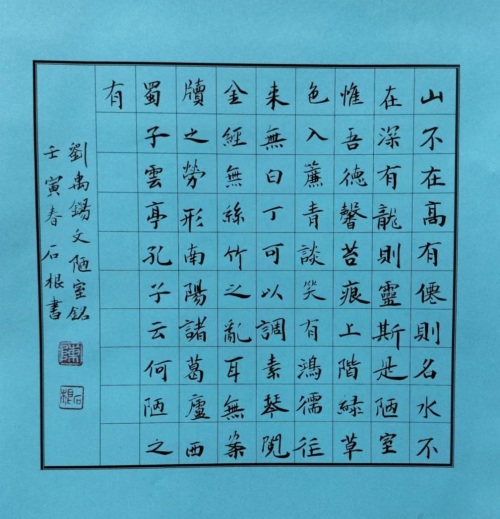 山不在高有僊則名水不
在深有龍則靈斯是陋室
惟吾德馨苔痕上階綠草
色入簾青談笑有鴻儒往
来無白丁可以調素琴閱
金經無絲竹之亂耳無案
牘之勞形南陽諸葛廬西
蜀子雲亭孔子云何陋之
有
劉禹錫文陋室銘
壬寅春石根書
石根